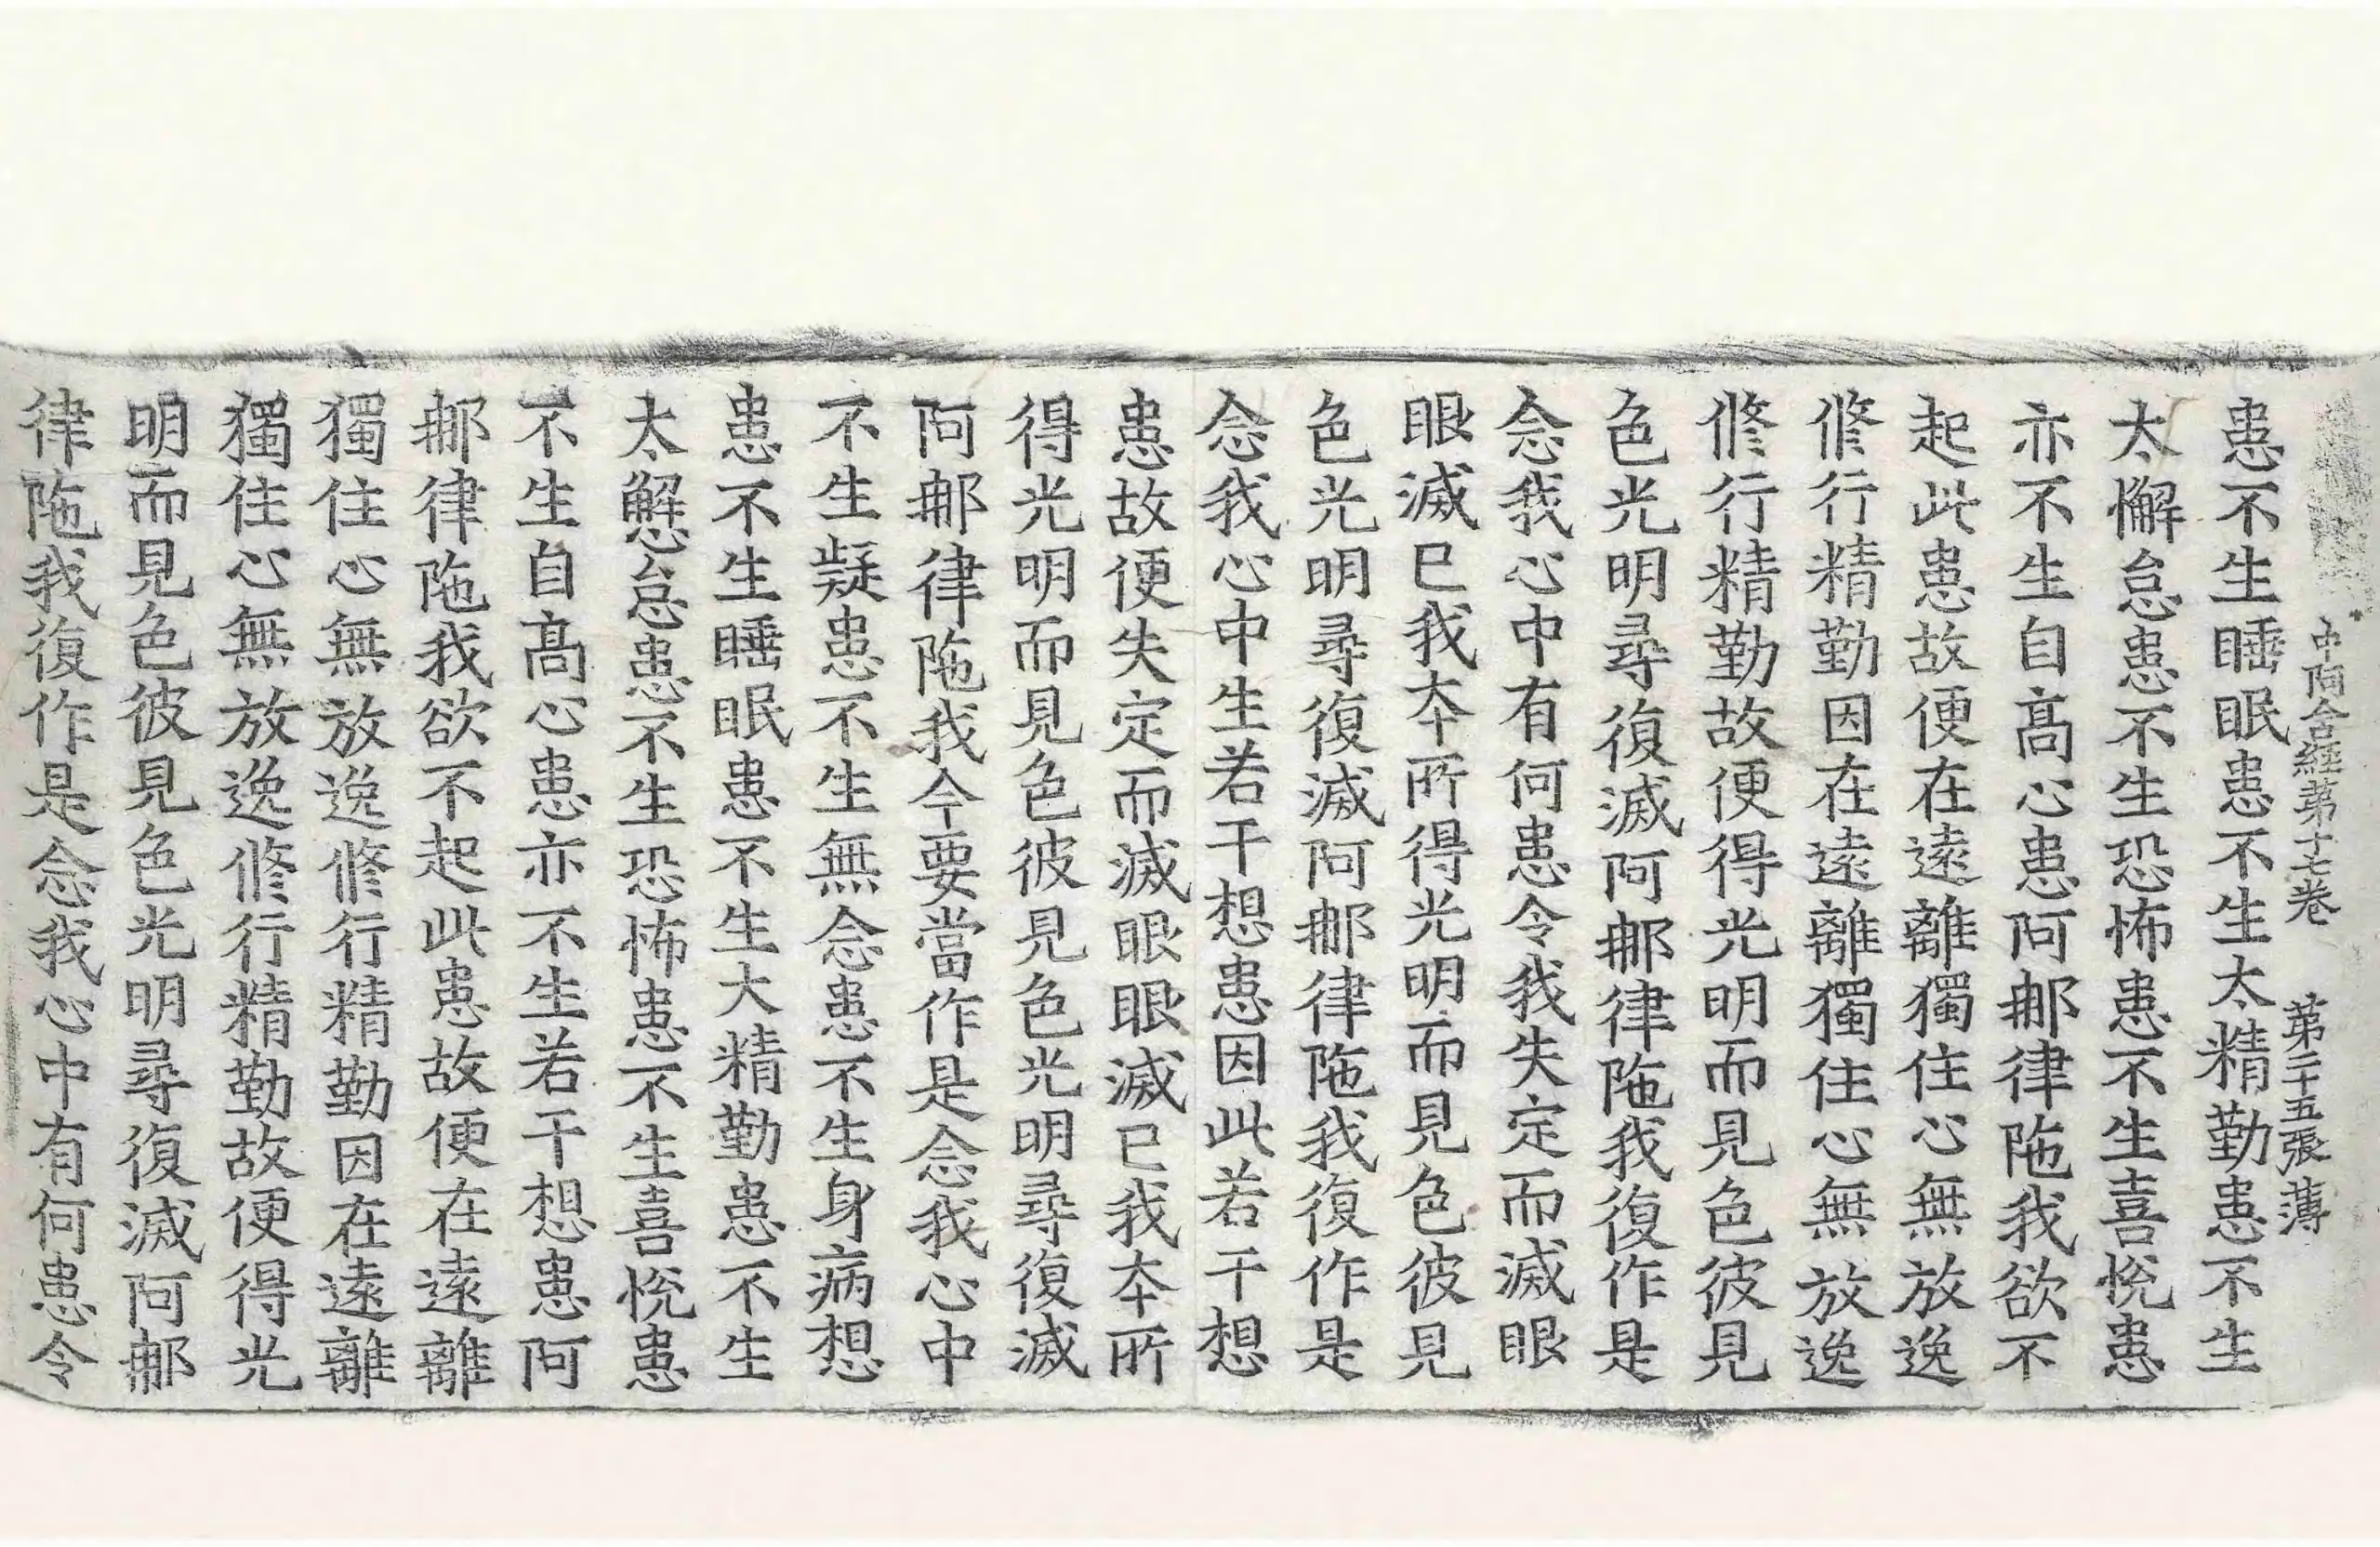 中阿含經第十七卷　第二十五張　薄
患不生睡眠患不生太精勤患不生
太懈怠患不生恐怖患不生喜悅患
亦不生自高心患阿那律陁我欲不
起此患故便在遠離獨住心無放逸
修行精勤因在遠離獨住心無放逸
修行精勤故便得光明而見色彼見
色光明尋復滅阿那律陁我復作是
念我心中有何患令我失定而滅眼
眼滅已我本所得光明而見色彼見
色光明尋復滅阿那律陁我復作是
念我心中生若干想患因此若干想
患故便失定而滅眼眼滅已我本所
得光明而見色彼見色光明尋復滅
阿那律陁我今要當作是念我心中
不生疑患不生無念患不生身病想
患不生睡眠患不生大精勤患不生
太懈怠患不生恐怖患不生喜悅患
不生自高心患亦不生若干想患阿
那律陁我欲不起此患故便在遠離
獨住心無放逸修行精勤因在遠離
獨住心無放逸修行精勤故便得光
明而見色彼見色光明尋復滅阿那
律陁我復作是念我心中有何患令